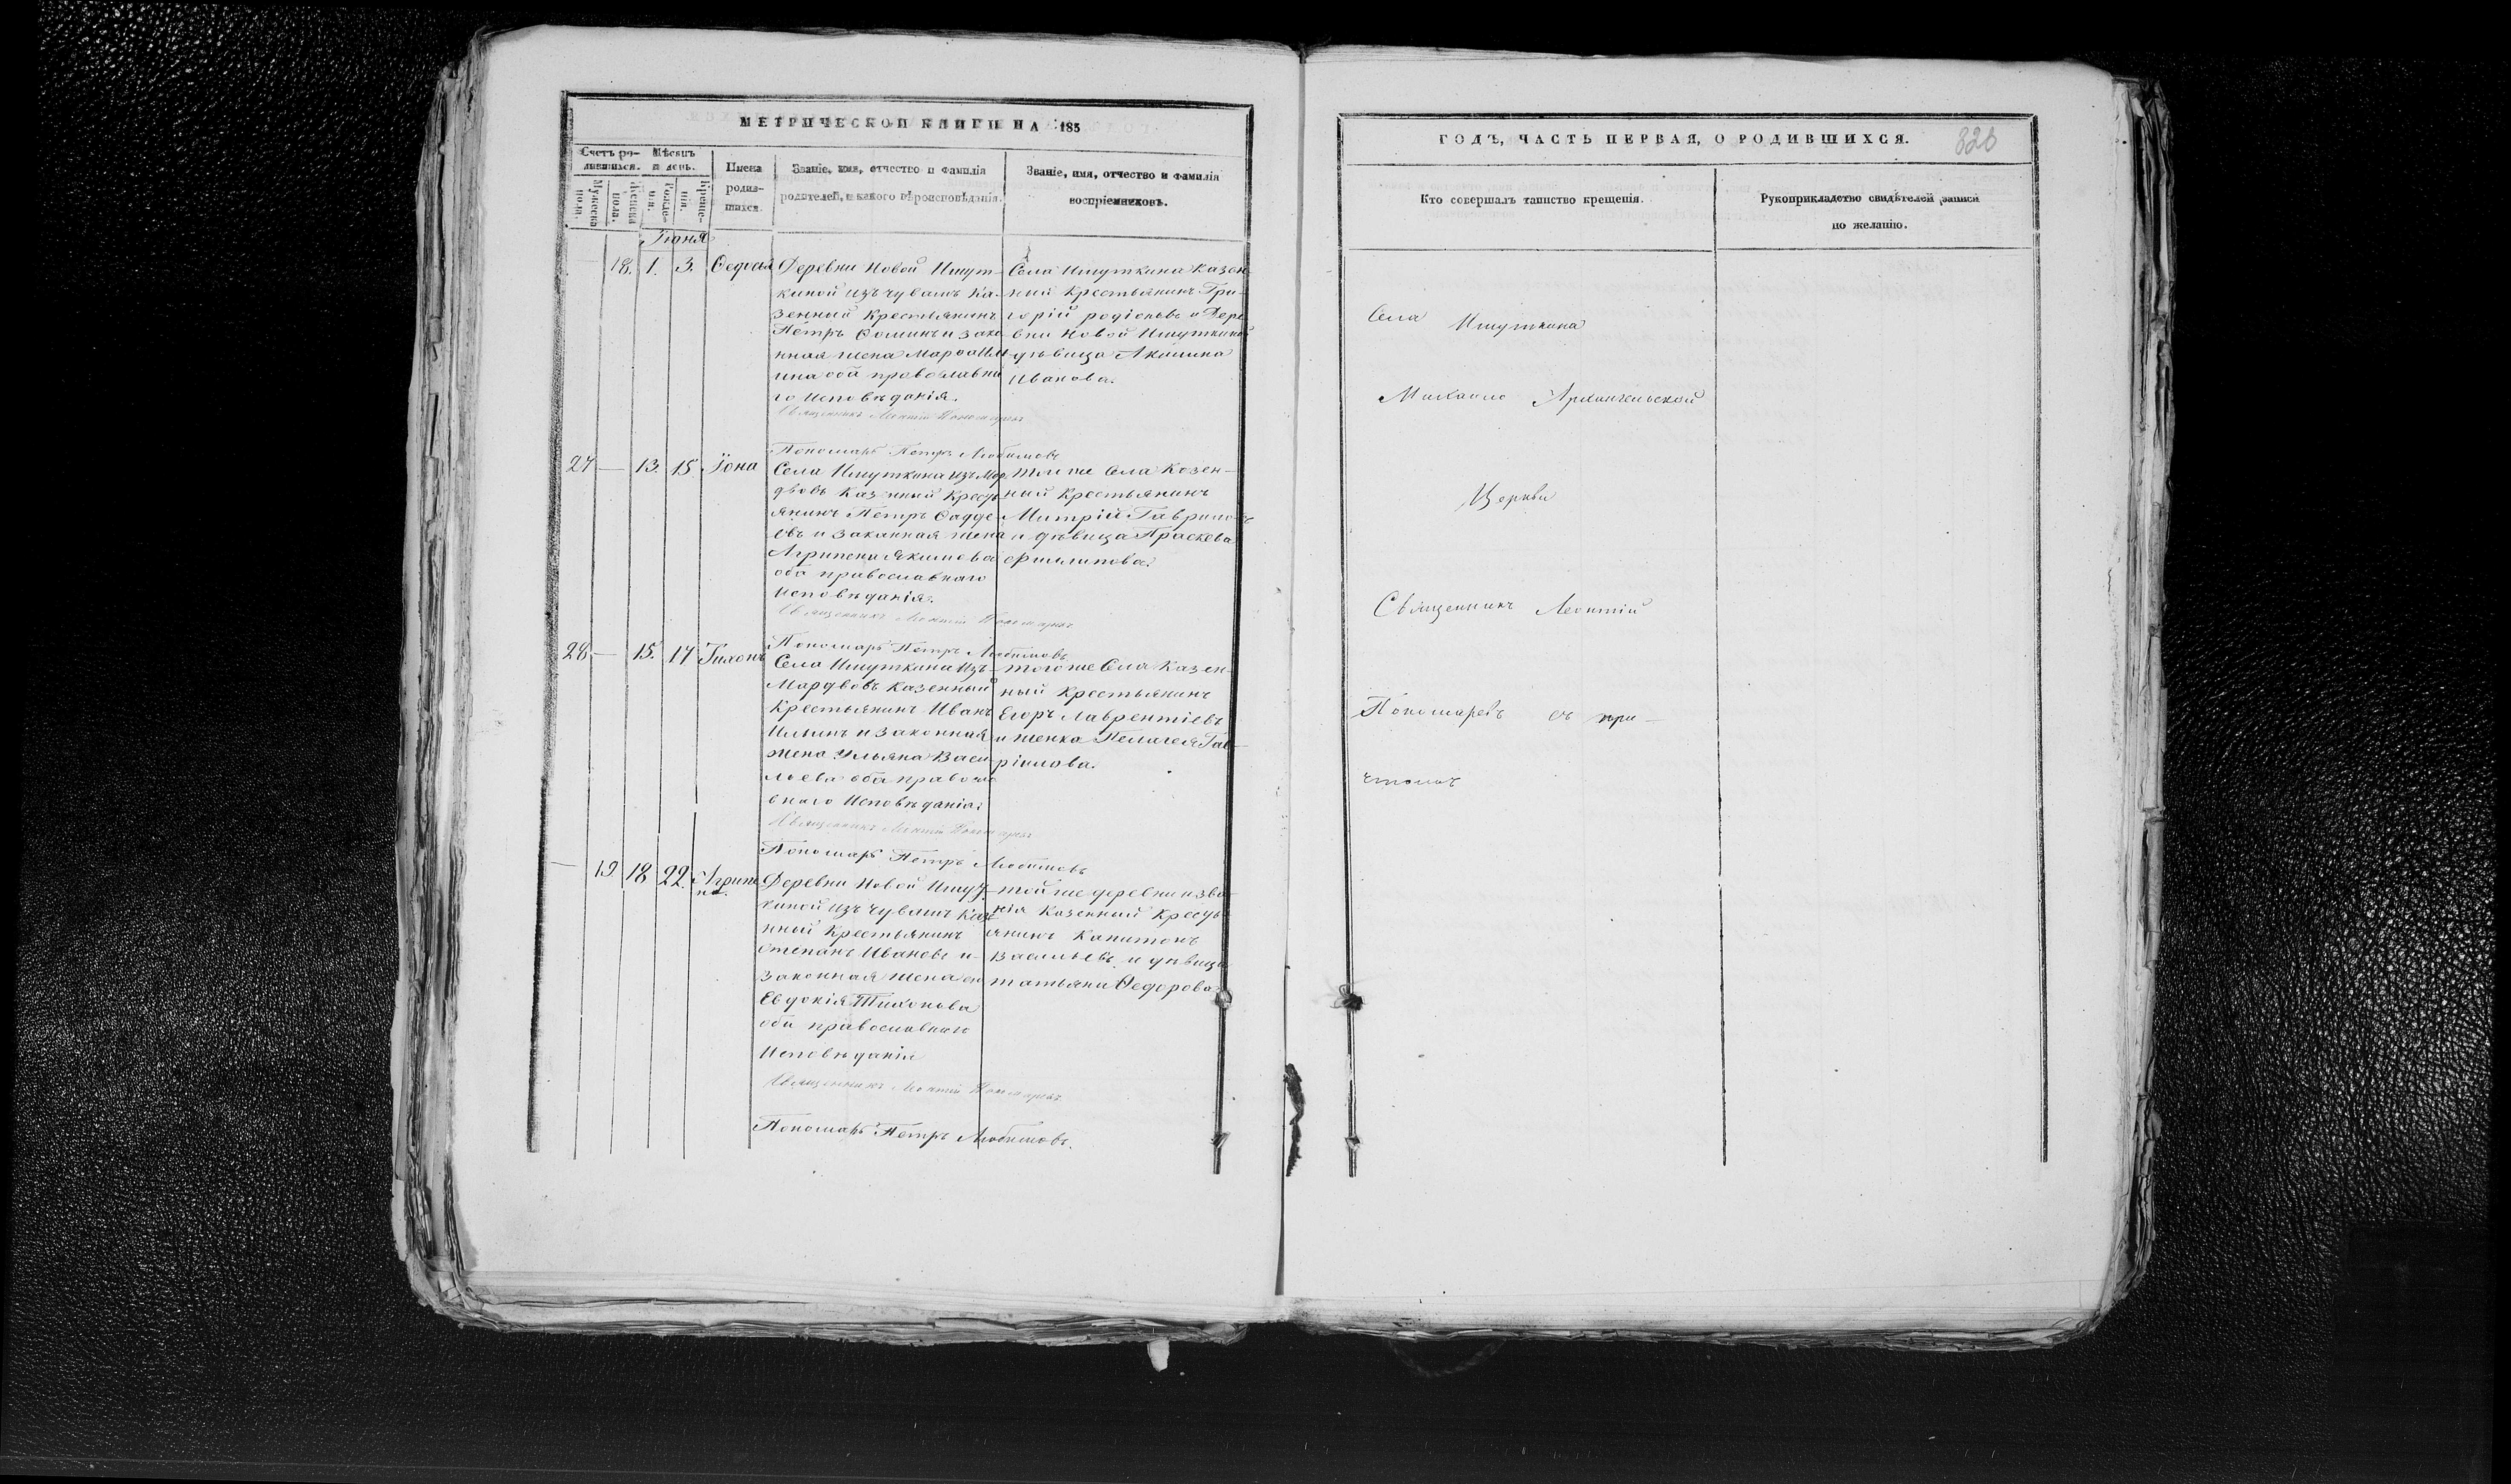 МЕТРИЧЕСКОЙ КНИГИ НА 185
Счетъ ро-
дившихся.
Мужеска
пола.
Женска
пола.
Мѣсяцъ
и день.
Рожде-
нія.
Креще-
нія.
Имена
родив-
шихся.
Званіе, имя, отчество и фамилія
родителей, и какого вѣроисповѣданія.
Званіе, имя, отчество и фамилія
воспріемниковъ.
Іюня
— 18. 1. 3. Ѳедосья
Деревни Новой Ишут-
киной изъ чувашъ Ка-
зенный Крестьянинъ
Петръ Ѳоминъ и зако
нная жена Марѳа Иль
ина оба православна
го Исповѣданія.
Священникъ Леонтій Пономаревъ
Пономарь Петръ Любимовъ
Села Ишуткина Казен
ный Крестьянинъ Гри-
горій родіоновъ и Дере
вни Новой Ишуткиной
дѣвица Акилина
Иванова.
27 — 13. 15. Іона
Села Ишуткина изъ Мор
двовъ Казенный Кресть
янинъ Петръ Ѳадде-
евъ и законная жена
Агрипена Якимова
оба православнаго
Исповѣданія.
Священникъ Леонтій Пономаревъ
Пономарь Петръ Любимовъ
того же Села Козен-
ный Крестьянинъ
Митрій Гавриловъ
и дѣвица Праскева
Филипова.
28 — 15. 17 Тихонъ
Села Ишуткина Изъ
Мордвовъ Казенный
Крестьянинъ Иванъ
Ильинъ и законная
жена Ульяна Васи
льева оба правосла
внаго Исповѣданія.
Священникъ Леонтій Пономаревъ
Пономарь Петръ Любимовъ
того же Села Казен-
ный Крестьянинъ
Егоръ Лаврентіевъ
и женка Пелагея Гав-
рілова.
— 19. 18 22. Агрипе
на.
Деревни Новой Ишут
киной изъ чувашъ Казе
нный Крестьянинъ
степанъ Ивановъ и
Законная жена ево
Евдокія Тихонова
оба православнаго
Исповѣданія
Священникъ Леонтій Пономаревъ
Пономарь Петръ Любимовъ.
той же деревни и зва
нія Казенный Кресть
янинъ Капитонъ
Васильевъ и дѣвица
татьяна Ѳедорова
ГОДЪ, ЧАСТЬ ПЕРВАЯ, О РОДИВШИХСЯ. 326
Кто совершалъ таинство крещенія.
Рукоприкладство свидѣтелей записи
по желанію.
Села Ишуткина
Михаило Архангельской
Церкви
Священникъ Леонтій
Пономаревъ съ при-
чтомъ